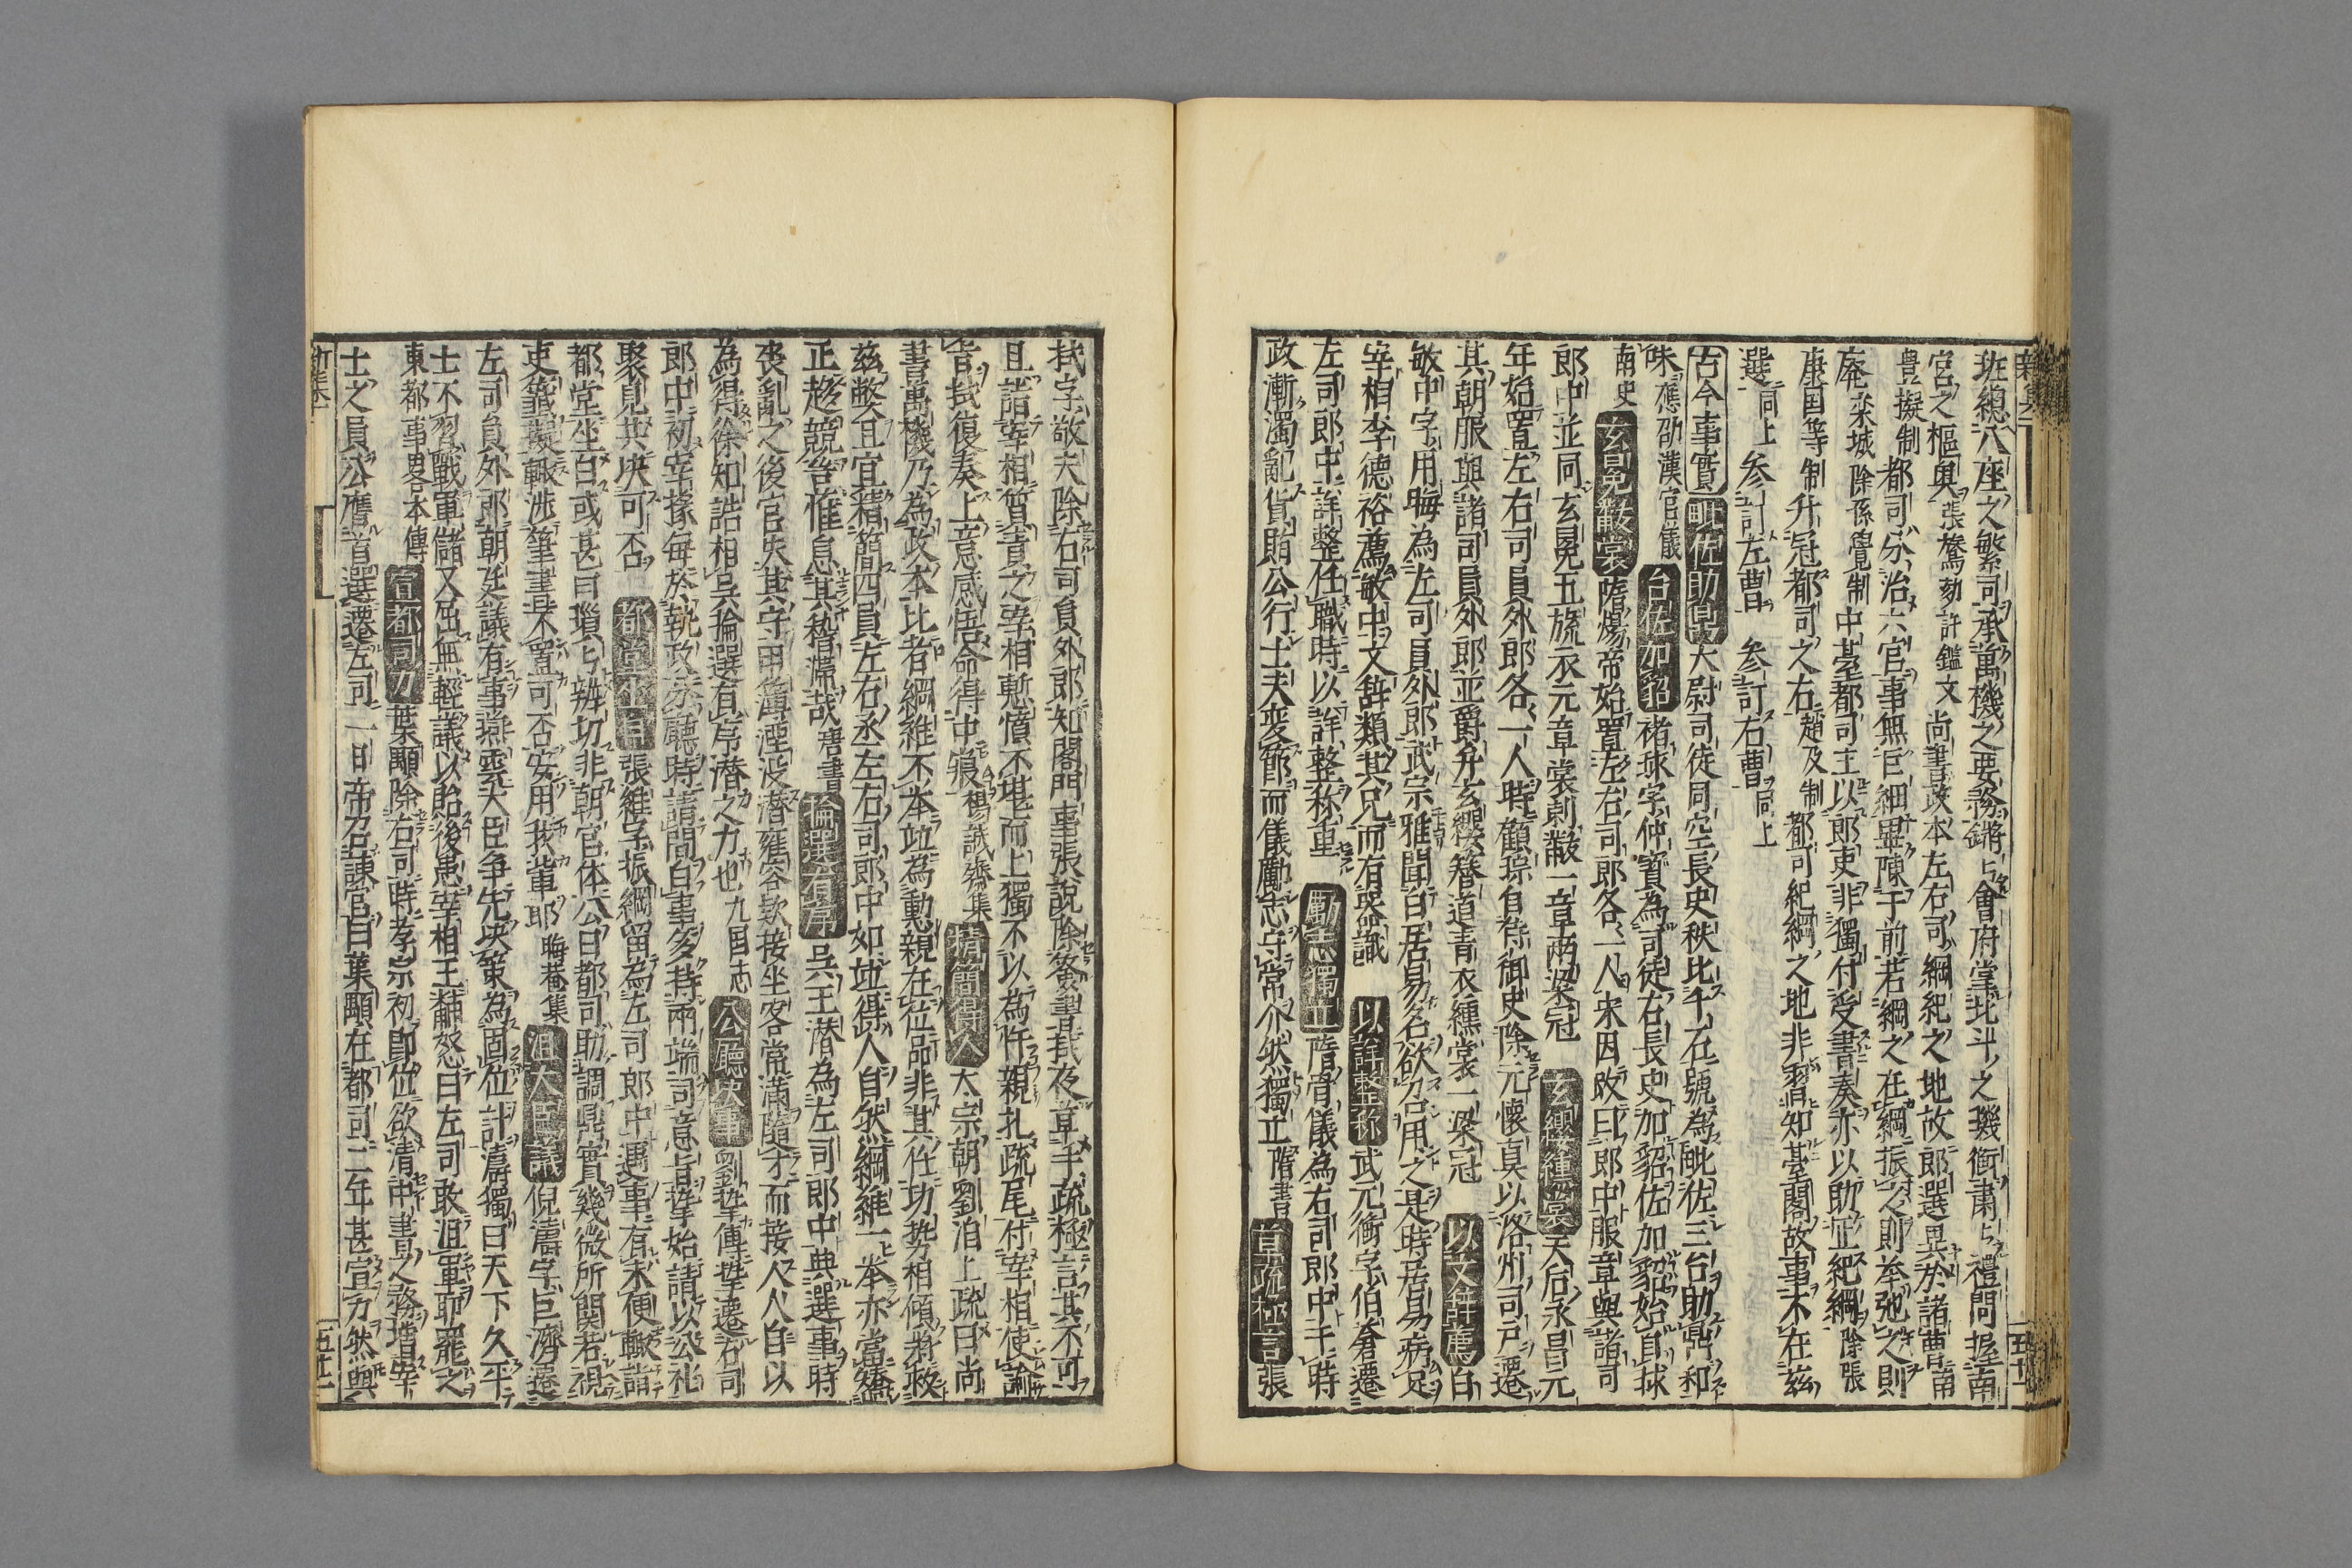 班總六座之繁司承萬機之要務鏘〻會府掌北斗之璣衡肅〻禮闈握南
宮之樞奥張鷟劾許鑑文尚書政本左右司綱紀之地故郎選異於諸曹南
豊擬制都司分治六官事無巨細畢陳于前若綱之在綱振之則举弛之則
庵栾城除孫覺制中䑓都司主以郎吏非獨付受書奏亦以助正紀綱除張
康国等制升冠都司之右趙及制都司紀綱之地非習知䑓閣故事不在兹
選同上参訂左曹参訂右曹同上
古今事實毗佐助鼎大尉司徒司空長史秩比千石號為毗佐三台助鼎和
味應劭漢官儀台佐加貂褚球字仲寳為司徒右長史加貂佐加貂始自球
南史玄冕黻裳隋煬帝始置左右司郎各一人宋因改曰郎中服章與諸司
郎中並同玄冕五旒衣元章裳刺黻一章兩梁冠玄纓纁裳天后永昌元
年始置左右司員外郎各一人時顧琮自待御史除元懷真以洛州司戸遷
其朝服與諸司員外郎並爵弁玄纓簪道青衣纁裳一梁冠以文辞薦白
敏中字用晦為左司員外郎武宗雅聞白居易名欲召用之是時居易病足
宰相李德裕薦敏中文辞類其兄而有噐識以詳整称武元衡字伯蒼遷
左司郎中詳整任職時以詳整称重勵志獨正隋斉儀為右司郎中于時
政漸濁亂貨賄公行士夫変節而儀勵志守常介然獨正隋書首疏極言張
拭字敬夫除右司員外郎知閤門事張説除簽書拭夜草手疏極言其不可
且詣宰相質責之宰相慙憤不堪而上獨不以為忤親扎疏尾付宰相使諭
旨拭復奏上意感悟命得中寢楊誠齋集精簡得人太宗朝劉洎上疏曰尚
書萬機乃為政本比者綱維不举竝為勳親在位品非其任功勢相傾将救
兹弊且宜精簡四員左右丞左右司郎中如竝得人自然綱維一举亦當矯
正趍競豈惟息其稽滯哉唐書掄選有序呉王潜為左司郎中典選事時
喪亂之後官失其守甲簿湮没潜雍容欵接坐客常満隨才而接人人自以
為得徐知誥相呉掄選有序潜之力也九国志公廳决事劉摯傳摯遷右司
郎中初宰掾毎於執政分廳時請間白事多持兩端司意旨摯始請以公礼
聚見共决可否都堂坐白張維字振綱留為左司郎中遇事有未便輙詣
都堂坐白或甚曰瑣〻辨切非朝官体公曰都司助調鼎實幾微所関若視
吏筆擬輙渉筆書不置可否安用扶輩耶晦菴集沮大臣議倪濤字巨濟遷
左司員外郎朝廷議有事燕雲大臣争先决策為固位計濤獨曰天下久平
士不習戰軍儲又屈無輕議以貽後患宰相王黼怒曰左司敢沮軍耶罷之
東都事畧本傳宣都司力葉顒除右司時孝宗初即位欲清中書之務増宰
士之員公膺首選遷左司一日帝召諌官曰葉顒在都司二年甚宣力然與